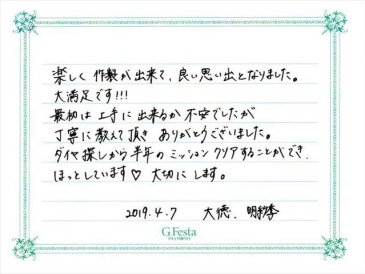 楽しく作製が出来て、良い思い出となりました。
大満足です!!!
最初は上手に出来るか不安でしたが
丁寧に教えて頂きありがとうございました。
ダイヤ探しから半年のミッションクリアすることができ、
ほっとしています♡ 大切にします。
2019.4.7 大徳、明
G.Festa
DIAMOND